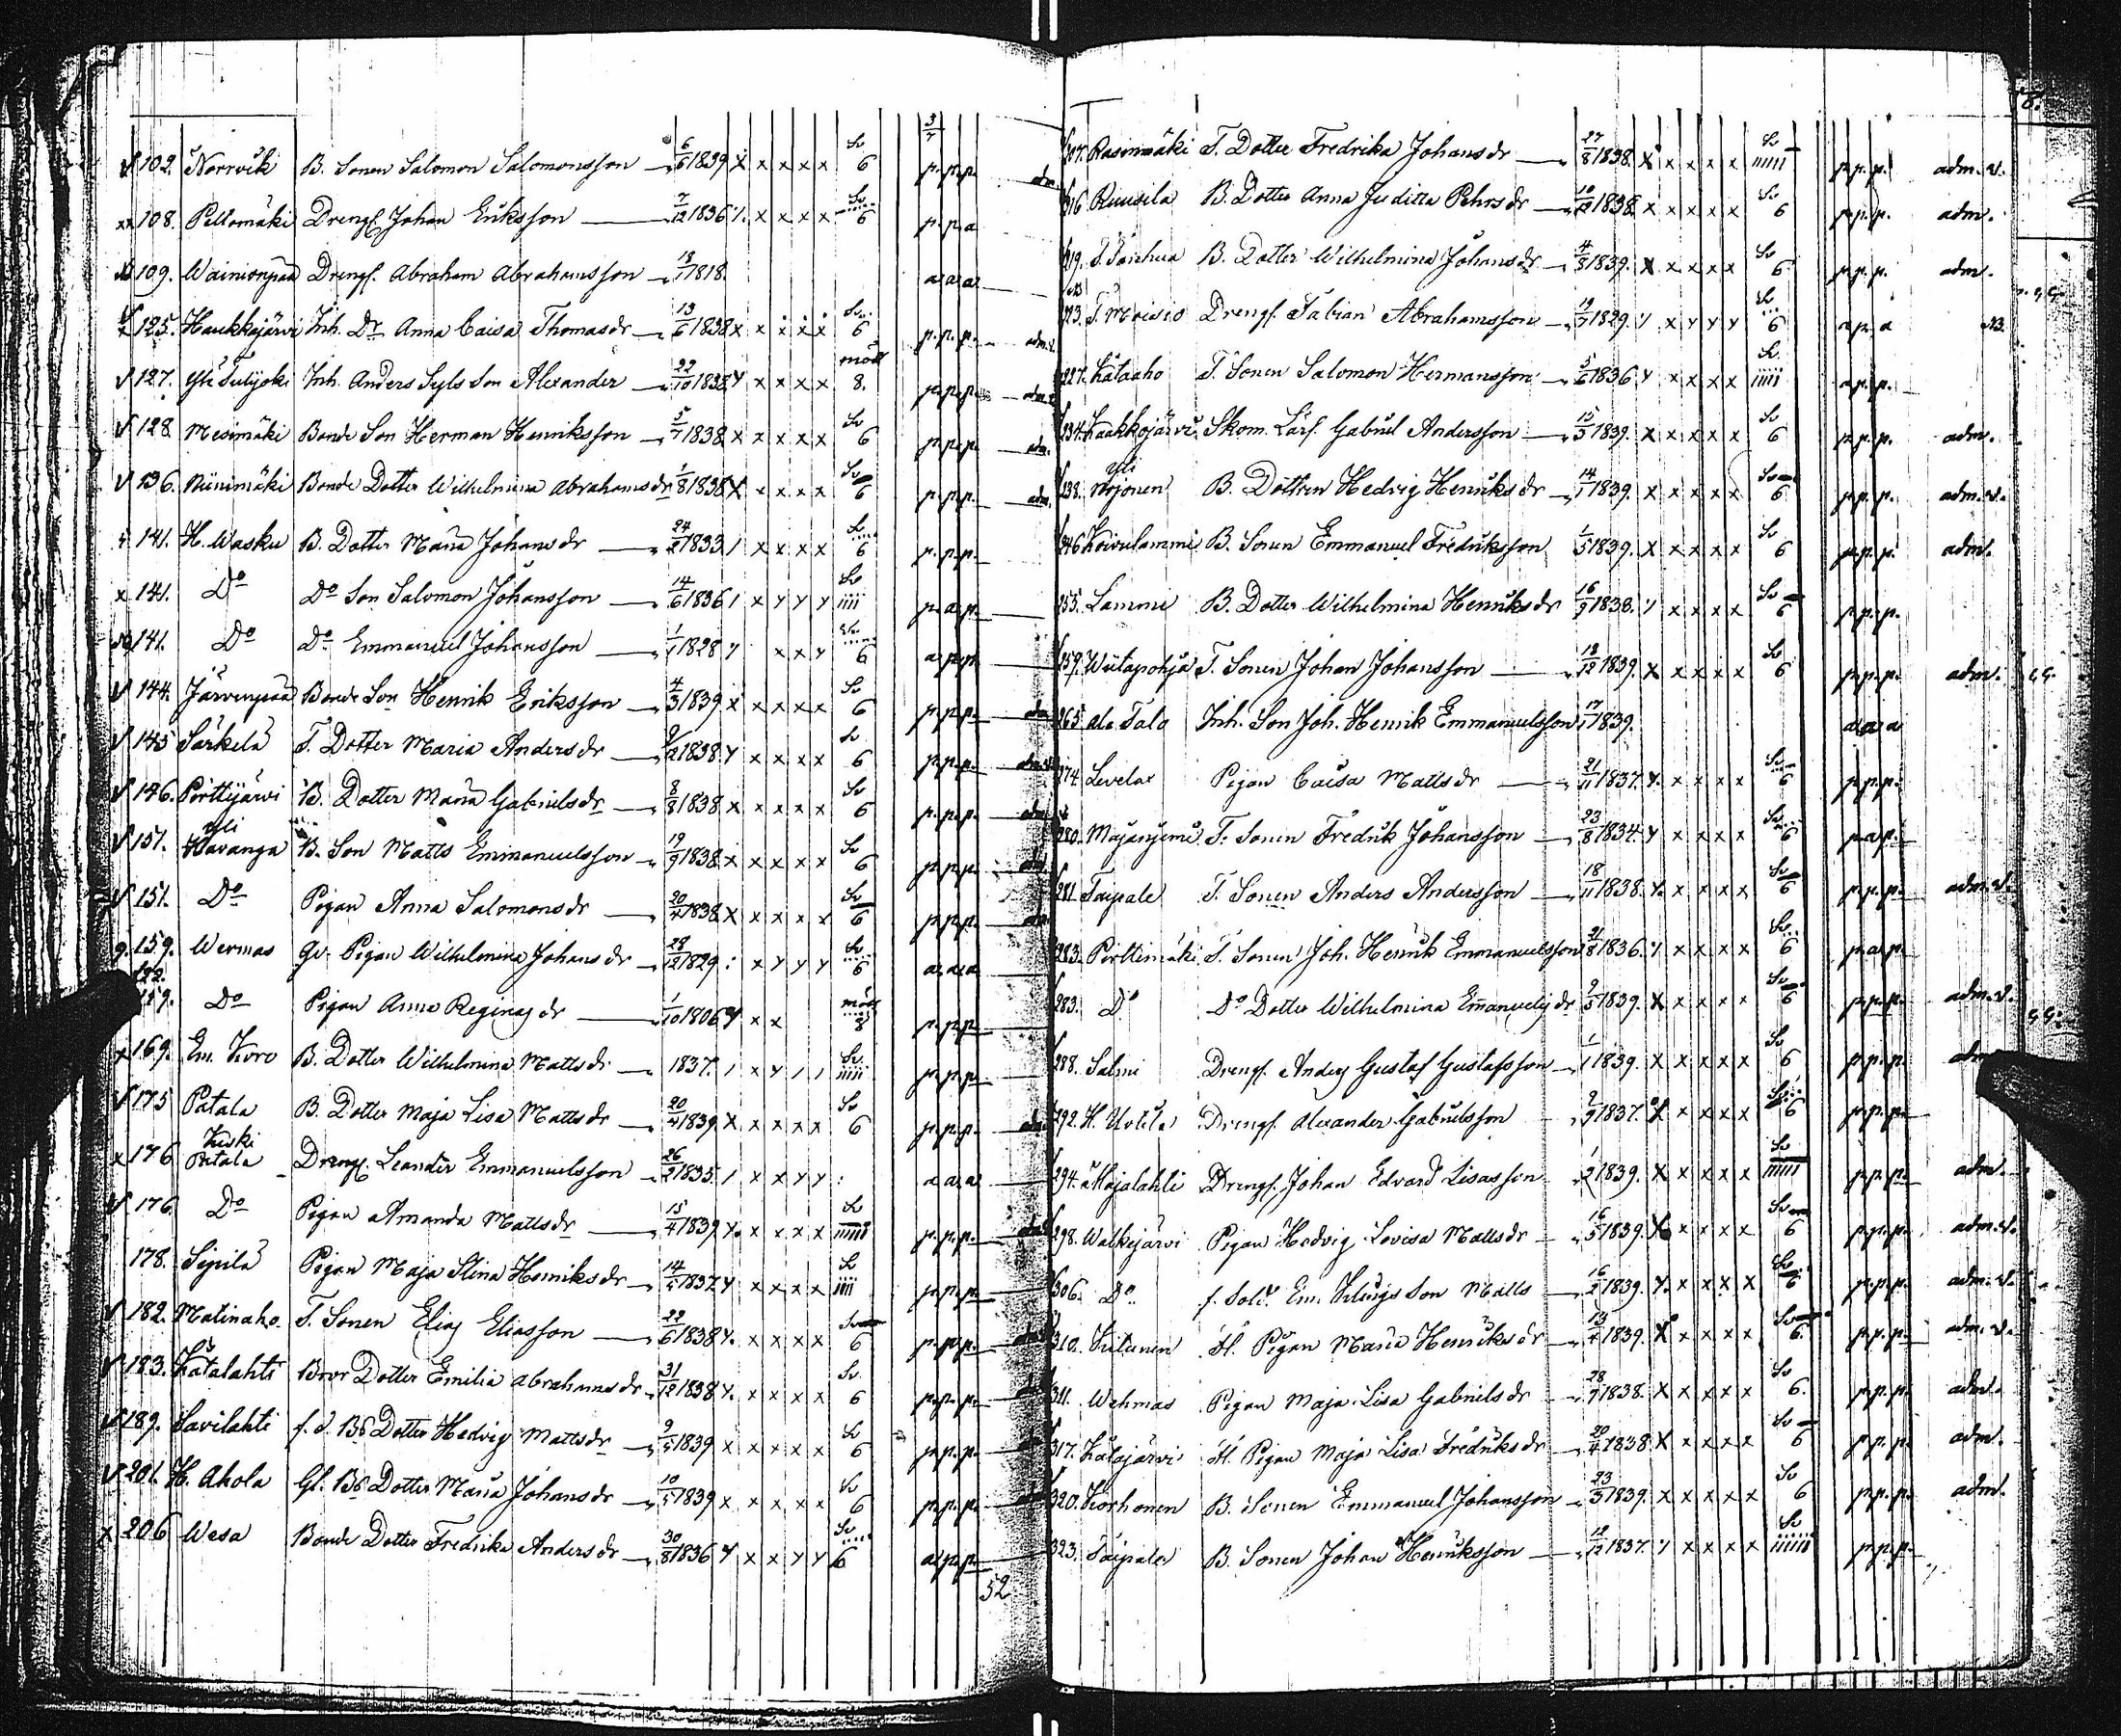 102. Norrvik B. Sonen Salomon Salomonsson 6/6 1839 x x x x x Sv 6 p. p. p. adm.
108. Peltomäki Drengs. Johan Eriksson 7/12 1836 x x x x Sv 6 p. p. a
109. Wainionpää Drengs. Abraham Abrahamsson 13/7 1818. a. a. a.
125. Haukkajärvi Inh. Dr Anna Caisa Thomasdr 13/6 1838 x x x x x Sv 6 p. p. p. adm.
127. Yli Tulijoki Inh. Anders Syls Son Alexander 22/10 1838 y x x x x möd 8. p. p. p. adm.
128 Mesimäki Bonde Son Herman Henriksson 5/7 1838 x x x x x Sv 6 p. p. p. adm.
136. Niinimäki Bonde Dotter Wilhelmina Abrahamsdr 1/8 1838 x x x x x Sv 6 p. p. p. adm.
141. H. Wasku B. Dotter Maria Johansdr 24/2 1833 / x x x x Sv 6 p. p. p.
x 141. Do Do Son Salomon Johansson 14/6 1836 / x y y y Sv iiii p. a. p.
141. Do Do Emmanuel Johansson 1/1 1828 y x x y Sv 6 a. p. p.
144. Järvenpää Bonde Son Henrik Eriksson 4/3 1839 x x x x x Sv 6 p. p. p. adm.
145 Särkelä T. Dotter Maria Andersdr 1838 y x x x x Sv 6 p. p. p. adm.
146. Porttijärvi B. Dotter Maria Gabrielsdr 8/8 1838 x x x x x Sv 6 p. p. p. adm.
151. Yli Havanga B. Son Matts Emmanuelsson 19/9 1838 x x x x x Sv 6 p. p. p. adm.
151. Do Pigan Anna Salomonsdr 20/4 1838 x x x x x Sv 6 p. p. p. adm.
159. Wermas Gv. Pigan Wilhelmina Johansdr 28/12 1829 x y y y Sv 6 a. a. a.
159. Do Pigan Anna Reginasdr 1/10 1806 y x x möd 8 p. p. p.
x 169. Em. Koro B. Dotter Wilhelmina Mattsdr 1837. / x y / / Sv iiiii p. p. p.
175 Patala B. Dotter Maja Lisa Mattsdr 20/4 1839 x x x x x Sv 6 p. p. p. adm.
x 176 Keski Patala Drengs. Leander Emmanuelsson 26/2 1835 / x x y y a. a. a.
176. Do Pigan Amanda Mattsdr 15/4 1839 y. x x x x Sv iiiii p. p. p. adm.
178. Sipilä Pigan Maja Stina Henriksdr 14/5 1837 y x x x x Sv iiii p. p. p.
182. Matinaho T. Sonen Elias Eliasson 22/6 1838 y. x x x x Sv 6 p. p. p. adm.
183. Kätalahti Bror Dotter Emilia Abrahamsdr 31/12 1838 y. x x x x Sv 6 p. p. p. adm.
189. Savilahti f. d. Bs Dotter Hedvig Mattsdr 9/5 1839 x x x x x Sv 6 p. p. p.
201. H. Ahola Gl. Bs Dotter Maria Johansdr 10/5 1839 x x x x x Sv 6 p. p. p. adm.
x 206 Wesa Bonde Dotter Fredrika Andersdr 30/8 1836 y x x y y Sv 6 a. p. p.
52
8.
207. Rasinmäki T. Dotter Fredrika Johansdr 27/8 1838. x x x x x Sv iiiii p. p. p. adm. v.
216 Ruusila B. Dotter Anna Juditta Pehrsdr 10/12 1838 x x x x x Sv 6 p. p. p. adm.
219. B. Dotter Wilhelmina Johansdr 4/3 1839. x x x x x Sv 6 p. p. p. adm.
223. T. Moisio Drengs. Fabian Abrahamsson 19/7 1829. y x y y y Sv 6 a. p. a NB
227. Kätaaho T. Sonen Salomon Hermansson 5/6 1836 y x x x x Sv iiiii a. p. p.
234. Haukkajärvi Skom. Lärl. Gabriel Andersson 15/5 1839. x x x x x Sv 6 p. p. p. adm.
238. Yli B. Dottren Hedvig Henriksdr 14/1 1839. x x x x x Sv 6 p. p. p. adm. v.
246 Koivulammi B. Sonen Emmanuel Fredriksson 1/5 1839. x x x x x Sv 6 p. p. p. adm.
255. Lammi B. Dotter Wilhelmina Henriksdr 16/9 1838. y x x x x Sv 6 p. p. p.
259. Wiitapohja T. Sonen Johan Johansson 18/12 1839. x x x x x Sv 6 p. p. p. adm.
265. Ala Talo Inh. Son Joh. Henrik Emmanuelsson 17/1 1839. a. a. a
274. Levelax Pigan Caisa Mattsdr 21/11 1837. y. x x x x Sv 6 p. p. p.
280. Majaniemi T. Sonen Fredrik Johansson 23/8 1834. y x x x x Sv 6 p. a. p.
281 Taipale T. Sonen Anders Andersson 18/11 1838. y. x x x x Sv 6 p. p. p. adm. v.
283. Porttimäki T. Sonen Joh. Henrik Emmanuelsson 21/8 1836. y x x x x Sv 6 p. a. p.
283. Do Do Dotter Wilhelmina Emanuelsdr 2/5 1839. x x x x x Sv 6 p. p. p. adm. v.
288. Salmi Drengs. Anders Gustaf Gustafsson 1/1 1839. x x x x x Sv 6 p. p. p. adm
292. H. Drengs. Alexander Gabrielsson 2/9 1837. x x x x x Sv 6 p. p. p.
294. Majalahti Drengs. Johan Edvard Lisasson 1/2 1839. x x x x x Sv iiiiii p. p. p. adm.
298. Walkejärvi Pigan Hedvig Lovisa Mattsdr 16/5 1839. x x x x x Sv 6 p. p. p. adm. v.
306. Do f. Sold. Em. Son Matts 16/2 1839. y. x x x x Sv 6 p. p. p. adm. v.
310. H. Pigan Maria Henriksdr 13/4 1839. x x x x x Sv 6. p. p. p. adm. v.
311. Wehmas Pigan Maja Lisa Gabrielsdr 28/9 1838. x x x x x Sv 6. p. p. p. adm.
317. Kätajärvi H. Pigan Maja Lisa Fredriksdr 20/4 1838 x x x x x Sv 6 p. p. p. adm.
320. Korhonen B. Sonen Emmanuel Johansson 23/3 1839. x x x x x Sv 6 p. p. p. adm.
323. Taipale B. Sonen Johan Henriksson 12/12 1837. y x x x x Sv iiiiii p. p. p.